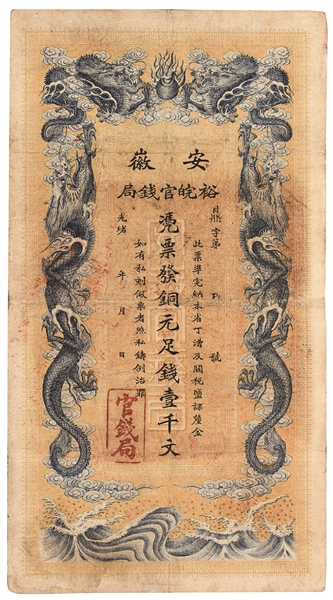 安徽
裕皖官錢局
鼎字第 號
此票準完納本省丁漕及關稅鹽課釐金
憑票發銅元足錢壹千文
如有私刻假票者照私鑄例治罪
光緒 年 月 日
官錢局